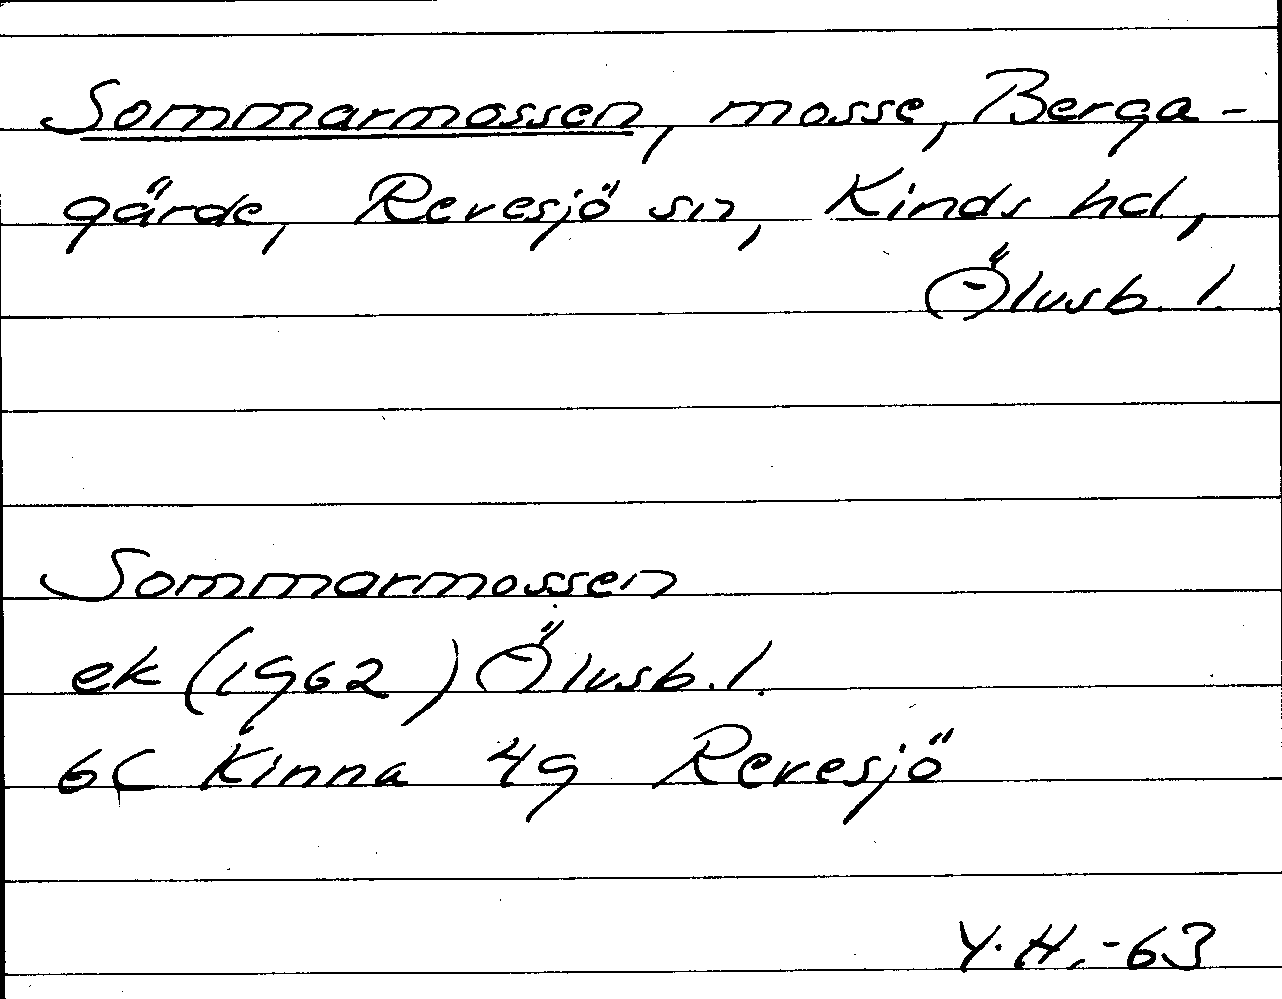 Sommarmossen, mosse, Berga-
gärde, Revesjö sn, Kinds hd,
Älvsb. l.
Sommarmossen
ek (1962) Älvsb. l.
6C Kinna 4g Revesjö
Y.H.-63